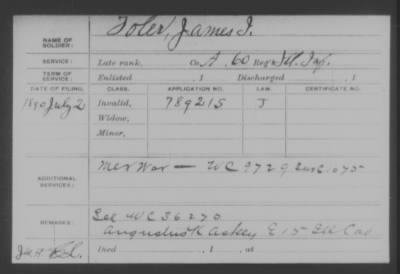 NAME OF SOLDIER: Toler, James I.
SERVICE: Late rank, Co. A, 60 Reg't Ill. Inf.
TERM OF SERVICE: Enlisted , 1 Discharged , 1
DATE OF FILING. CLASS. APPLICATION NO. LAW. CERTIFICATE NO.
1890 July 2 Invalid, 789215 J
Widow,
Minor,
ADDITIONAL SERVICES: Mex War — WC 9729
REMARKS: See WC 36270
Augustus K Askey E 15 Ill Cav
Died , 1 , at